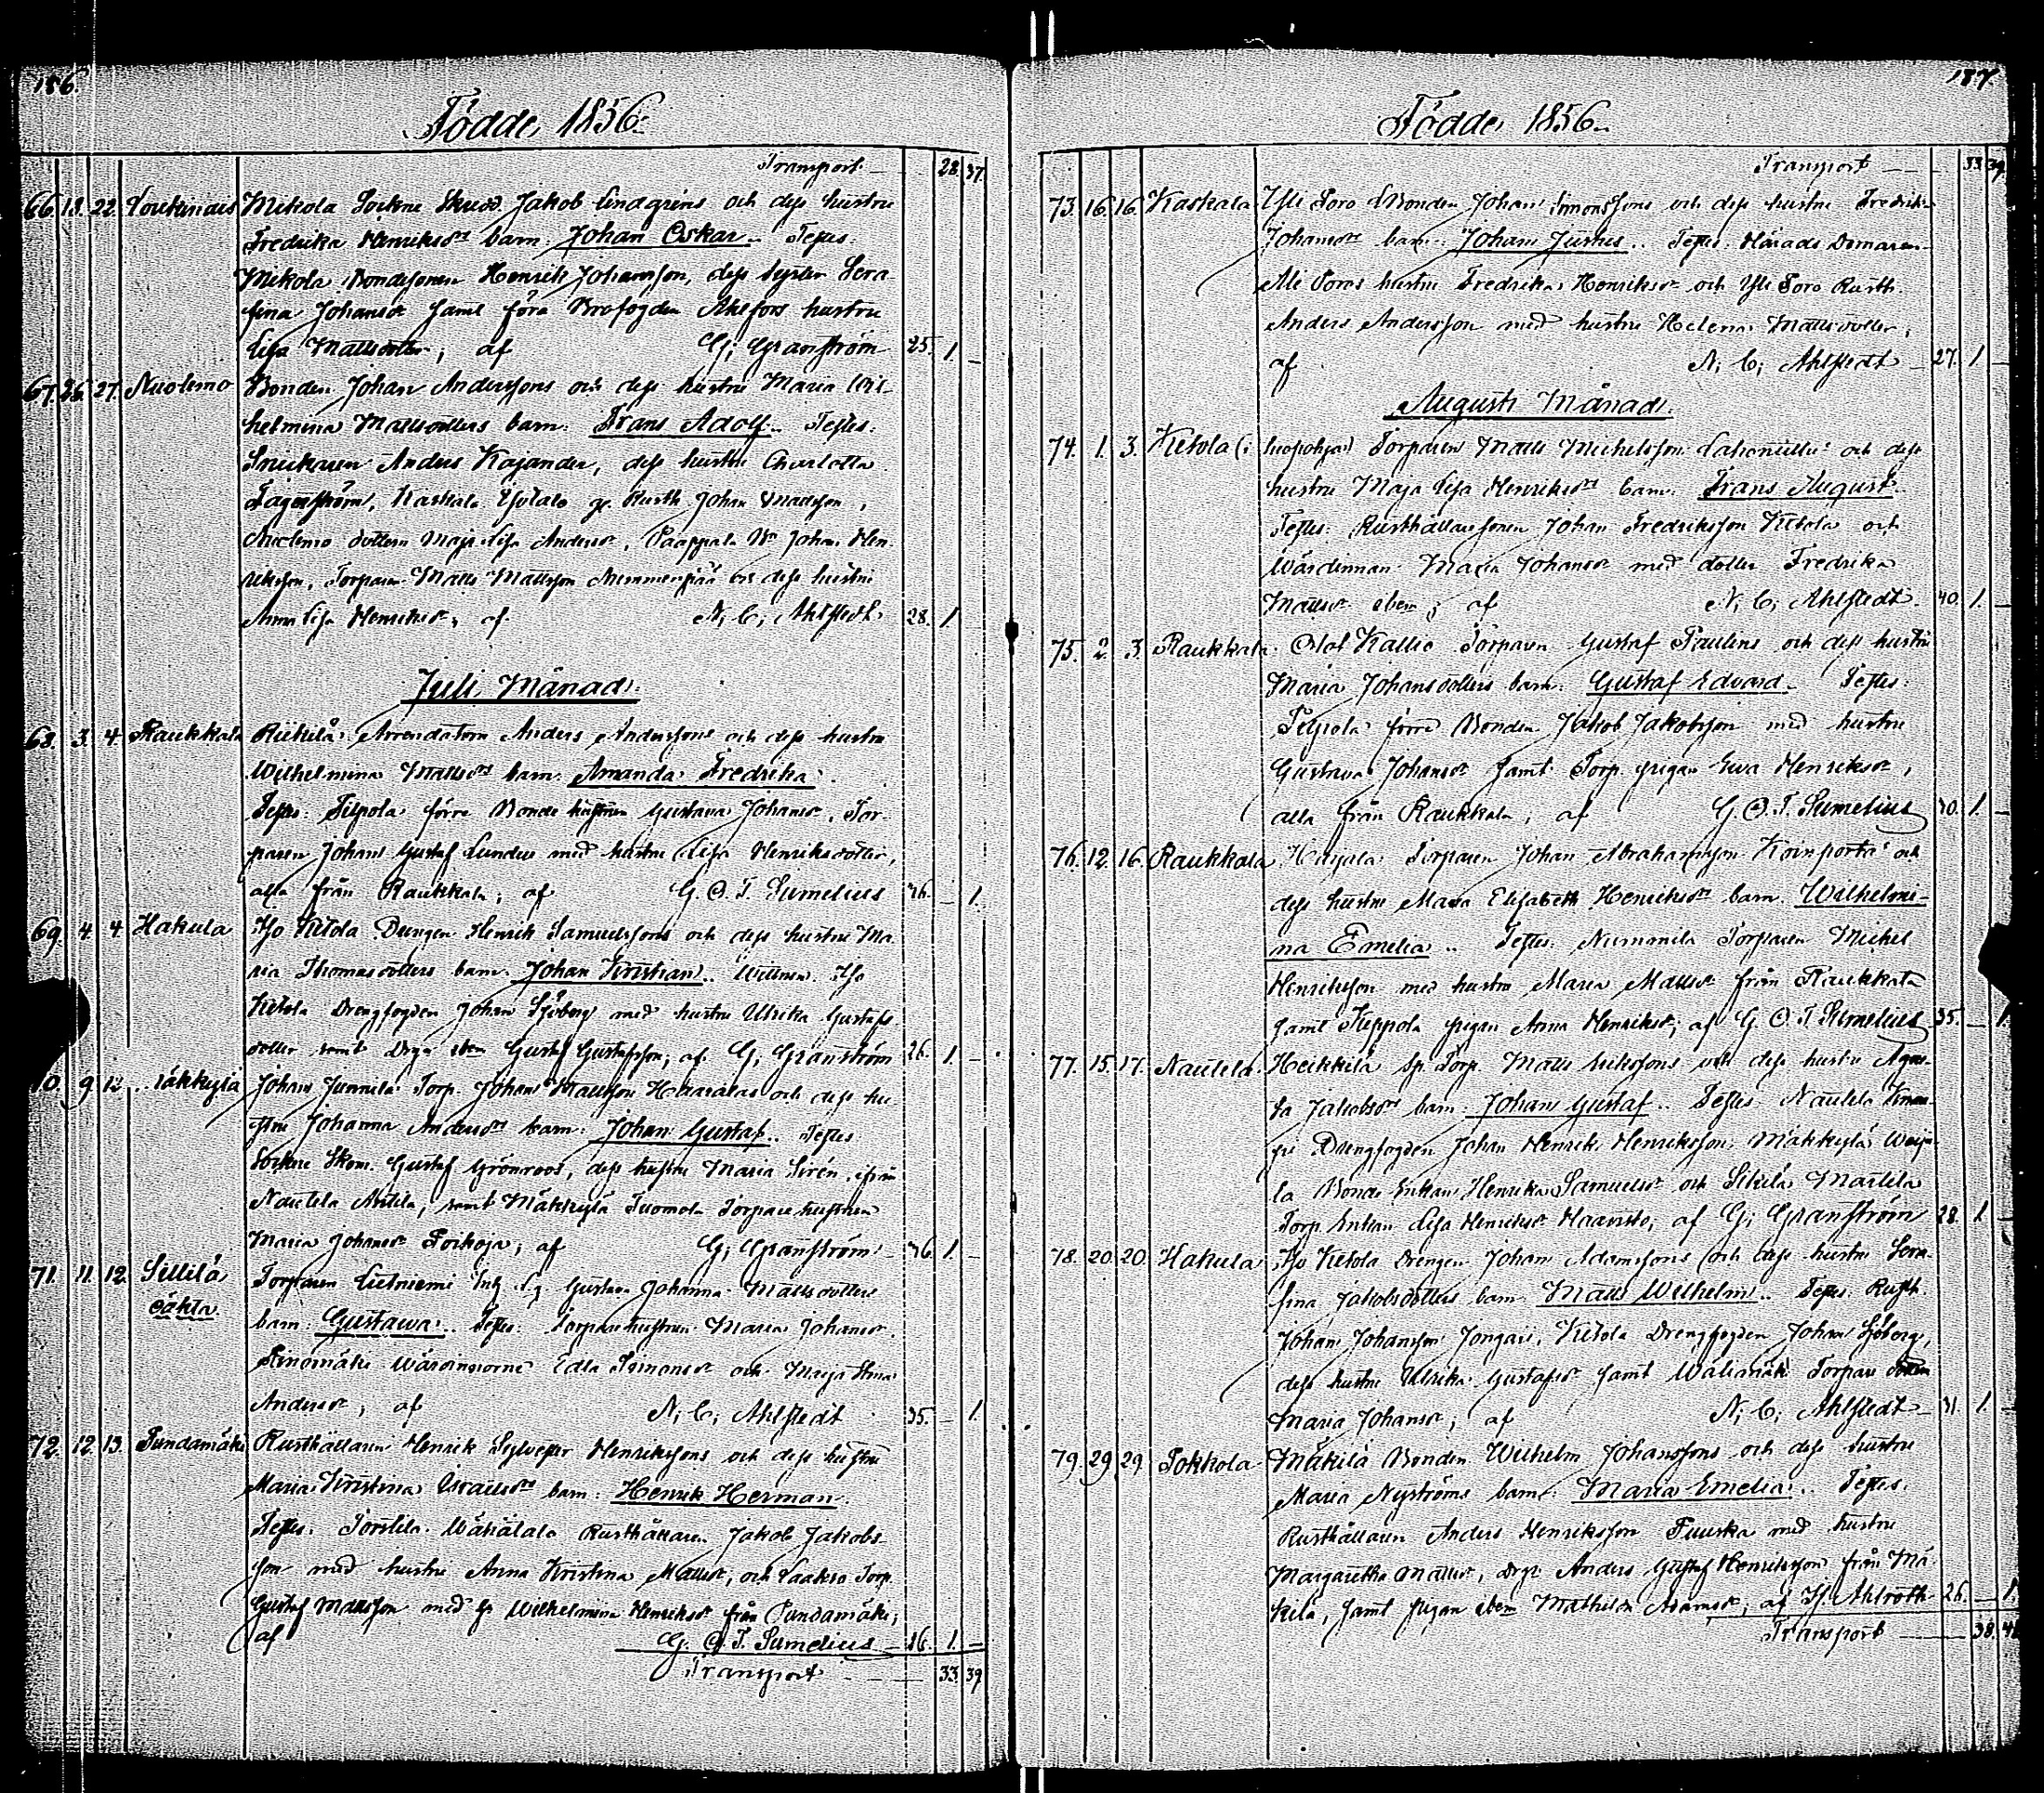 186.
Födde 1856.
Transport 28. 37.
66. 18. 22. Mikola Sockne Skrädd. Jakob Lindgrens och dess hustru
Fredrika Henriksdrs barn: Johan Oskar. Testes:
Mikola Bondesonen Henrik Johansson, dess syster Sera
fina Johansdr samt förra Brofogden Ahlfors hustru
Lisa Mattsdotter; af G; Granström 25. 1. –
67. 26. 27. Nuolemo Bonden Johan Anderssons och dess hustru Maria Wil-
helmina Mattsdotters barn: Frans Adolf. Testes:
Snickaren Anders Kajander, dess hustru Charlotta
Fagerström, Kaskala Ylistalo Rusth. Johan
Nuolemo dottern Maja Lisa Andersdr, Paappala Bn Johan Hen-
riksson, Torparen Matts Mattsson Nummenpää och dess hustru
Anna Lisa Henriksdr, af N; C; Ahlstedt 28. 1. –
Juli Månad.
68. 3. 4. Raukkala Riikilä Arrendatorn Anders Anderssons och dess hustru
Wilhelmina Mattsdrs barn: Amanda Fredrika.
Testes: Silpola förre Bonde hustrun Gustava Johansdr, Tor-
paren Johan Gustaf Lundin med hustru Lisa Henriksdotter,
alla från Raukkala; af G. O. T. Sumelius 26. – 1.
69. 4. 4. Hakula Iso Ketola Drengen Henrik Samuelssons och dess hustru Ma-
ria Thomasdotters barn: Johan Kristian. Wittnen: Iso
Ketola Drengfogden Johan Sjöberg med hustru Ulrika Gustafs
dotter samt Drgn iben Gustaf Gustafsson; af G; Granström 26. 1. –
70. 9. 12. Mäkkylä Johan Junnila Torp. Johan Mattsson Haavalas och dess hu-
stru Johanna Andersdrs barn: Johan Gustaf. Testes
Sockne Skom. Gustaf Grönroos, dess hustru Maria Sirén, ifrån
Nautela Anttila, samt Mäkkylä Tuomola Torpare hustrun
Maria Johansdr Poikoja; af G; Granström 36. 1. –
71. 11. 12. Sillilä Torparen Lietniemi Enk. Gustava Johanna Mattsdotters
oäkta barn: Gustawa. Testes: Torpare hustrun Maria Johansdr.
Wärdinnorne Edla Simonsdr och Maija Stina
Andersdr, af N; C; Ahlstedt 35. – 1.
72. 12. 13. Pundamäki Rusthållaren Henrik Sylvester Henrikssons och dess hustru
Maria Kristina Israelsdrs barn: Henrik Herman.
Testes: Torstila Wähätalo Rusthållaren Jakob Jakobs-
son med hustru Anna Kristina Mattsdr, och Laakso Torp.
Gustaf Mattsson med h. Wilhelmina Henriksdr från Pundamäki;
af G. O. T. Sumelius 26. 1. –
Transport 33. 39.
187.
Födde 1856.
Transport 33. 39.
73. 16. 16. Kaskala Yli Soro Bonden Johan Simonssons och dess hustru Fredrika
Johansdrs barn: Johan Justus. Testes: Härads Domaren
Ali Soros hustru Fredrika Henriksdr och Yli Soro Rusth.
Anders Andersson med hustru Helena Mattsdotter;
af N; C; Ahlstedt 27. 1. –
Augusti Månad.
74. 1. 3. Ketola (i Torparen Matts Michelsson och dess
hustru Maja Lisa Henriksdrs barn: Frans August.
Testes: Rusthållaresonen Johan Fredriksson Ketola och
Wärdinnan Maria Johansdr med dotter Fredrika
Mattsdr iben; af N; C; Ahlstedt 40. 1. –
75. 2. 3. Raukkala Kallio Torparen Gustaf Paulins och dess hustru
Maria Johansdotters barn: Gustaf Edvard. Testes:
Silpola förre Bonden Jakob Jakobsson med hustru
Gustava Johansdr samt Torp. pigan Ewa Henriksdr,
alla från Raukkala; af G. O. T. Sumelius 30. 1. –
76. 12. 16. Raukkala Harjala Torparen Johan Abrahamsson Koinporta och
dess hustru Maria Elisabeth Henriksdrs barn: Wilhelmi-
na Emelia. Testes: Nummila Torparen Michel
Henriksson med hustru Maria Mattsdr från Raukkala
samt Seppola pigan Anna Henriksdr; af G. O. T. Sumelius 35. – 1.
77. 15. 17. Nautela Heikkilä Sp. Torp. Matts Erikssons och dess hustru Agne-
ta Jakobsdrs barn: Johan Gustaf. Testes: Nautela
Drengfogden Johan Henrik Henriksson, Mäkkylä
la Bonde Enkan Henrika Samuelsdr och Sikilä Marttila
Torp. Enkan Lisa Henriksdr Haavisto; af G; Granström 28. 1. –
78. 20. 20. Hakula Iso Ketola Drengen Johan Adamssons och dess hustru Sera-
fina Jakobsdotters barn: Matts Wilhelm. Testes: Rusth.
Johan Johansson Jongari, Ketola Drengfogden Johan Sjöberg,
dess hustru Ulrika Gustafsdr samt Wälimäki Torpare dottern
Maria Johansdr; af N; C; Ahlstedt 31. 1. –
79. 29. 29. Pokkola Mäkilä Bonden Wilhelm Johanssons och dess hustru
Maria Nyströms barn: Maria Emelia. Testes:
Rusthållaren Anders Henriksson Tuuska med hustru
Margaretha Mattsdr, Drgn Anders Gustaf Henriksson från Mä-
kilä, samt pigan iben Mathilda Adamsdr; af H; Ahlroth 26. – 1.
Transport 38. 41.